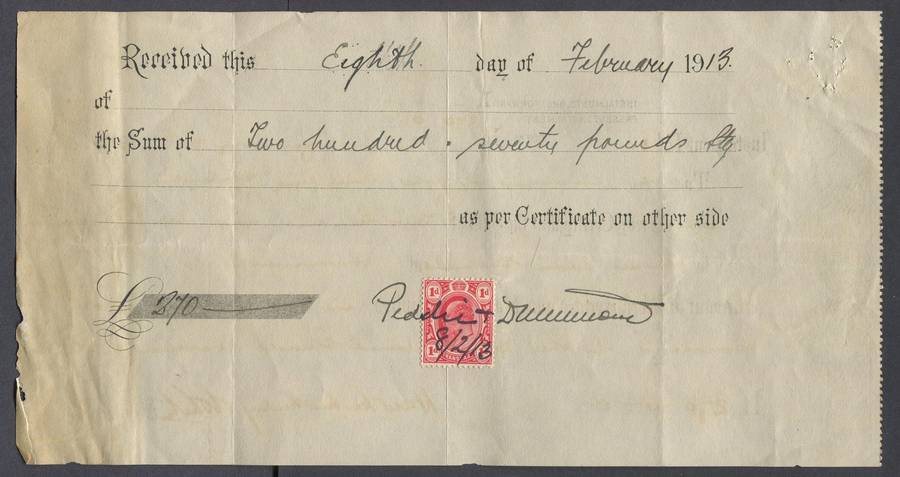 Received this Eighth. day of February 1913.
of
the Sum of Two hundred & seventy pounds Stg
as per Certificate on other side
£ 270
Peddie & Drummond
1d 1d
8/2/13
1d